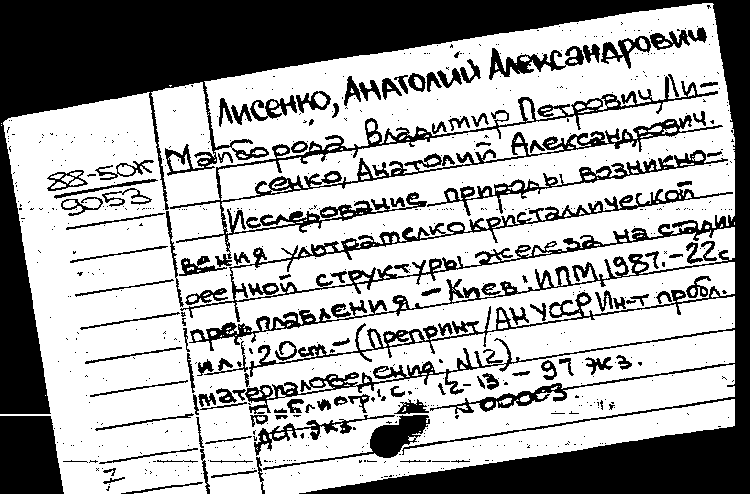 Лисенко, Анатолий Александрович
88-50К
9053
Майборода, Владимир Петрович, Ли-
сенко, Анатолий Александрович.
Исследование природы возникно-
вения ультрамелкокристаллической
реенной структуры железа на стадии
предплавления. - Киев: ИПМ, 1987. - 22с.
ил.; 20см. - (Препринт/АН УССР, Ин-т пробл.
материаловедения; N12).
Библиогр.: с. 12-13. - 97 экз.
дсп. экз. N 00003.
7